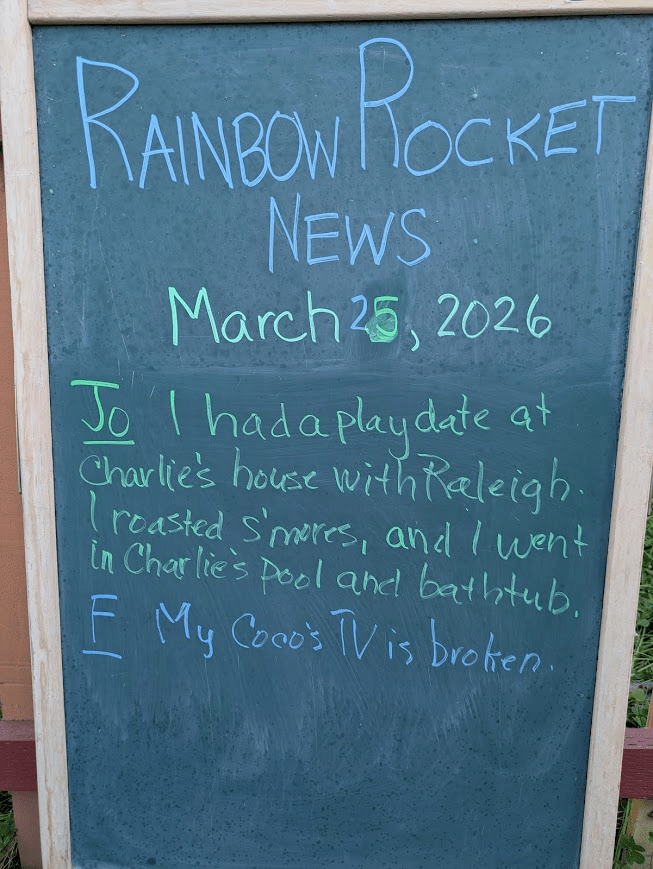 RAINBOW ROCKET
NEWS
March 25, 2026
Jo I had a playdate at
Charlie's house with Raleigh.
I roasted s'mores, and I went
in Charlie's pool and bathtub.
F My Coco's TV is broken.